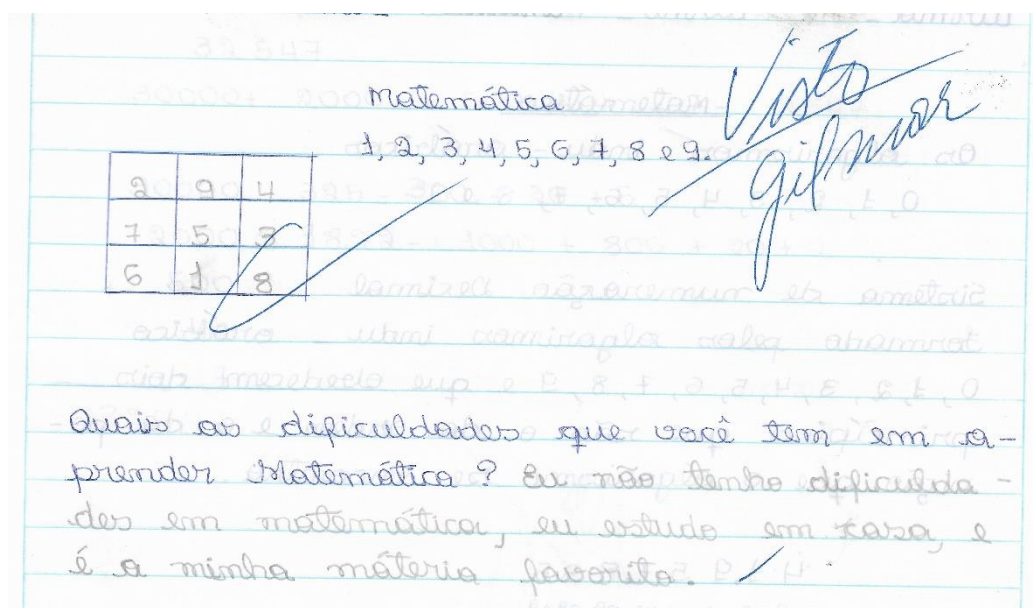 Matemática
1, 2, 3, 4, 5, 6, 7, 8 e 9.
Visto
Gilmar
2 9 4
7 5 3
6 1 8
Quais as dificuldades que você tem em a-
prender Matemática? Eu não tenho dificulda-
des em matemática, eu estudo em casa, e
é a minha máteria favorita.